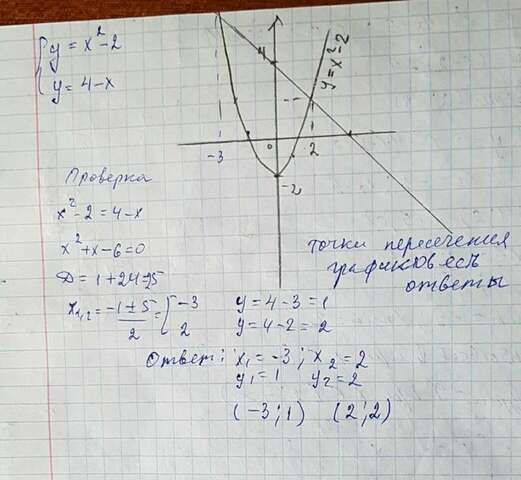 { y = x² - 2
{ y = 4 - x
4
y = x² - 2
-3
0
2
-2
Проверка
x² - 2 = 4 - x
x² + x - 6 = 0
D = 1 + 24 = 25
x₁,₂ = (-1 ± 5)/2 = [ -3
2
y = 4 - 3 = 1
y = 4 - 2 = 2
точки пересечения
графиков есть
ответы
Ответ: x₁ = -3 ; x₂ = 2
y₁ = 1 y₂ = 2
(-3; 1) (2; 2)